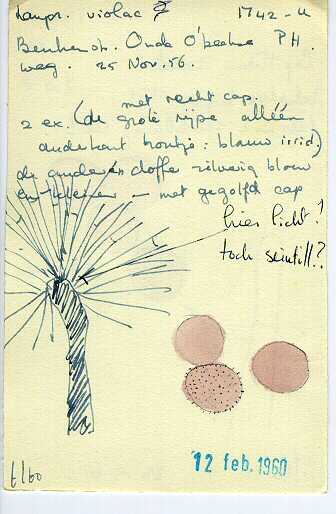 Lampr. violac 1742-u
Bentheim. Oude P.H.
weg. 25 Nov. 56.
met recht cap.
2 ex. (de grote rijpe alléén
onderkant blauw irid.)
de anderen doffe zilverig blauw
en kleiner — met gegolfd cap
hier licht!
toch scintill?
t/60
12 feb. 1960